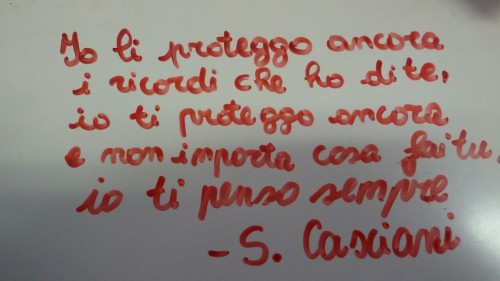 Io li proteggo ancora
i ricordi che ho di te,
io ti proteggo ancora
e non importa cosa fai tu,
io ti penso sempre
- S. Casciani